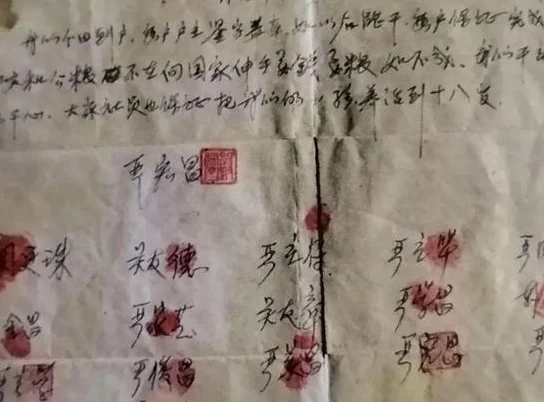 我们分田到户,每户户主签字盖章,如以后能干,每户保证完成
交和公粮 不在向国家伸手要钱要粮,如不成,我们干
干心,大家社员也保证把我们的小孩养活到十八岁.
严宏昌
关廷珠 关友德 严立符 严立华
金昌 严家芝 关友章 严学昌
严立学 严俊昌 严美昌 严宏昌